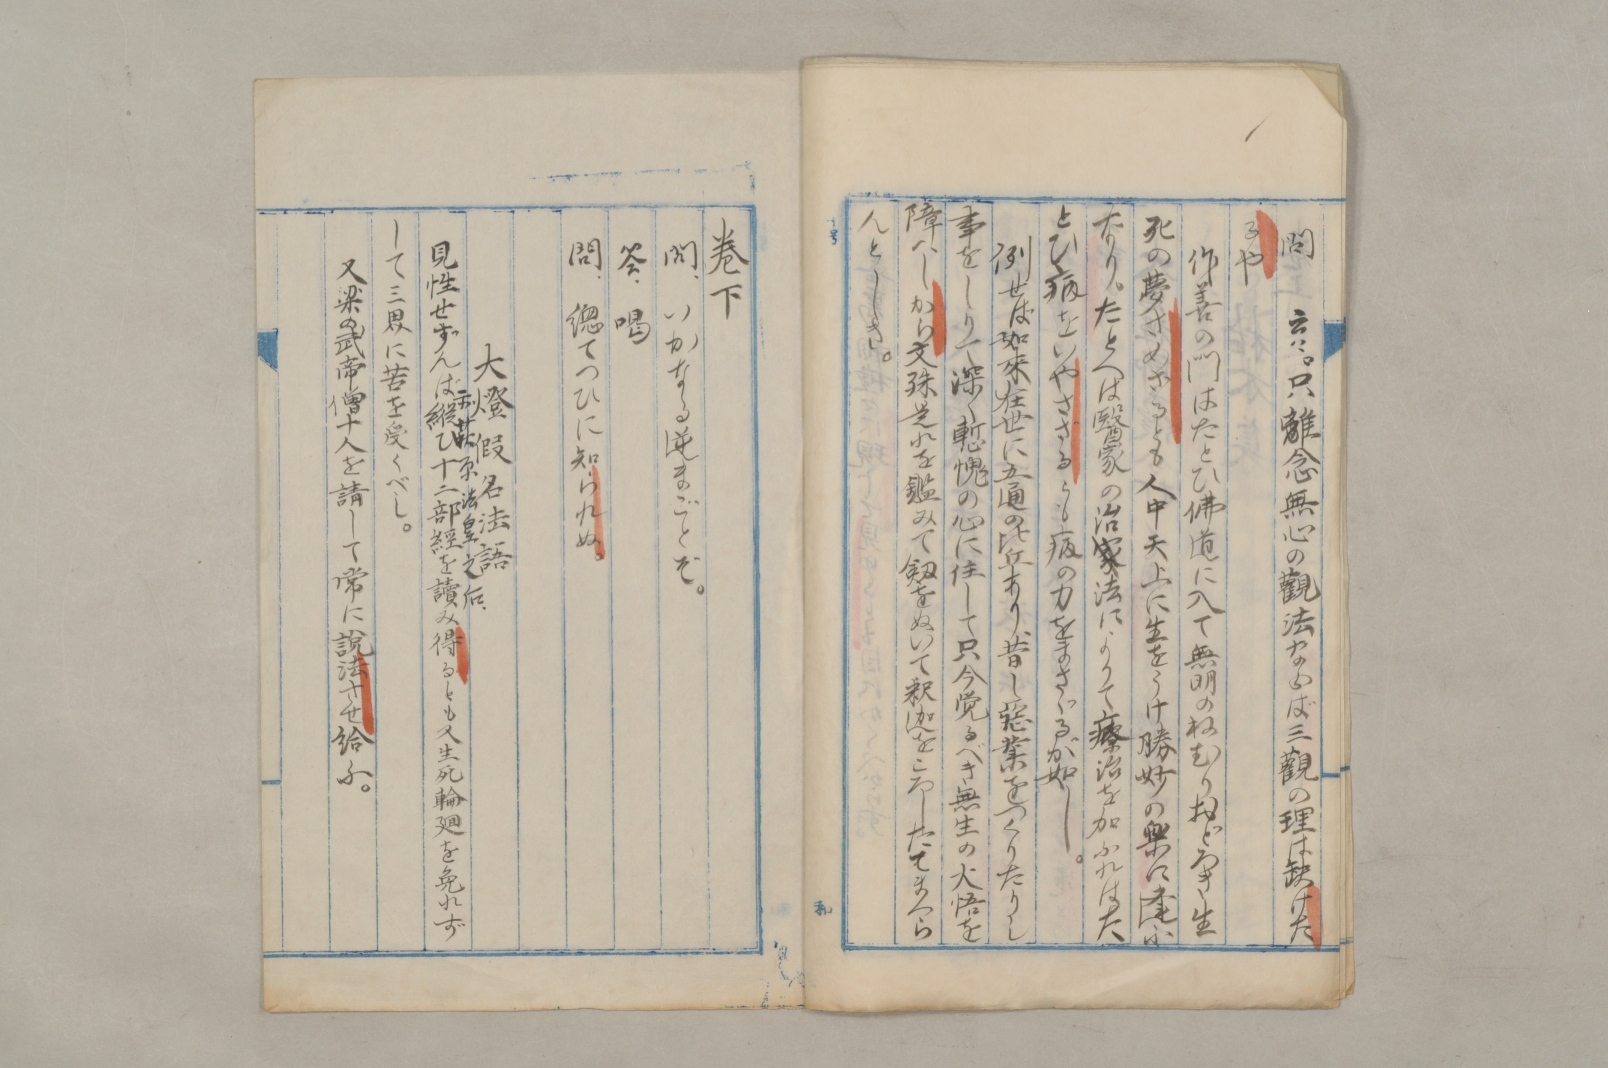 問　云云。只離念無心の觀法ならば三觀の理は缺けた
るや
作善の門はたとひ佛道に入て無明のねむりおどろき生
死の夢さめざるとも人中天上に生をうけ勝妙の樂に逢ふ
なり。たとへば醫家の治家法によりて療治を加ふればた
とひ病をいやさざるうも病の力をまさゞるが如し。
例せば如來在世に五通の比丘あり昔し惡業をつくりたりし
事をしりて深く慙愧の心に住して只今覚るべき無生の大悟を
障へしから文殊是れを鑑みて釼をぬいて釈迦をころしたてまつら
んとしき。
巻下
問、いかなる逆まごとぞ。
答、喝
問、總てつひに知られぬ。
大燈假名法語
示萩原法皇之后、
見性せずんば縱ひ十二部經を讀み得るとも又生死輪廻を免れず
して三界に苦を受くべし。
又梁の武帝僧十人を請して常に説法させ給ふ。